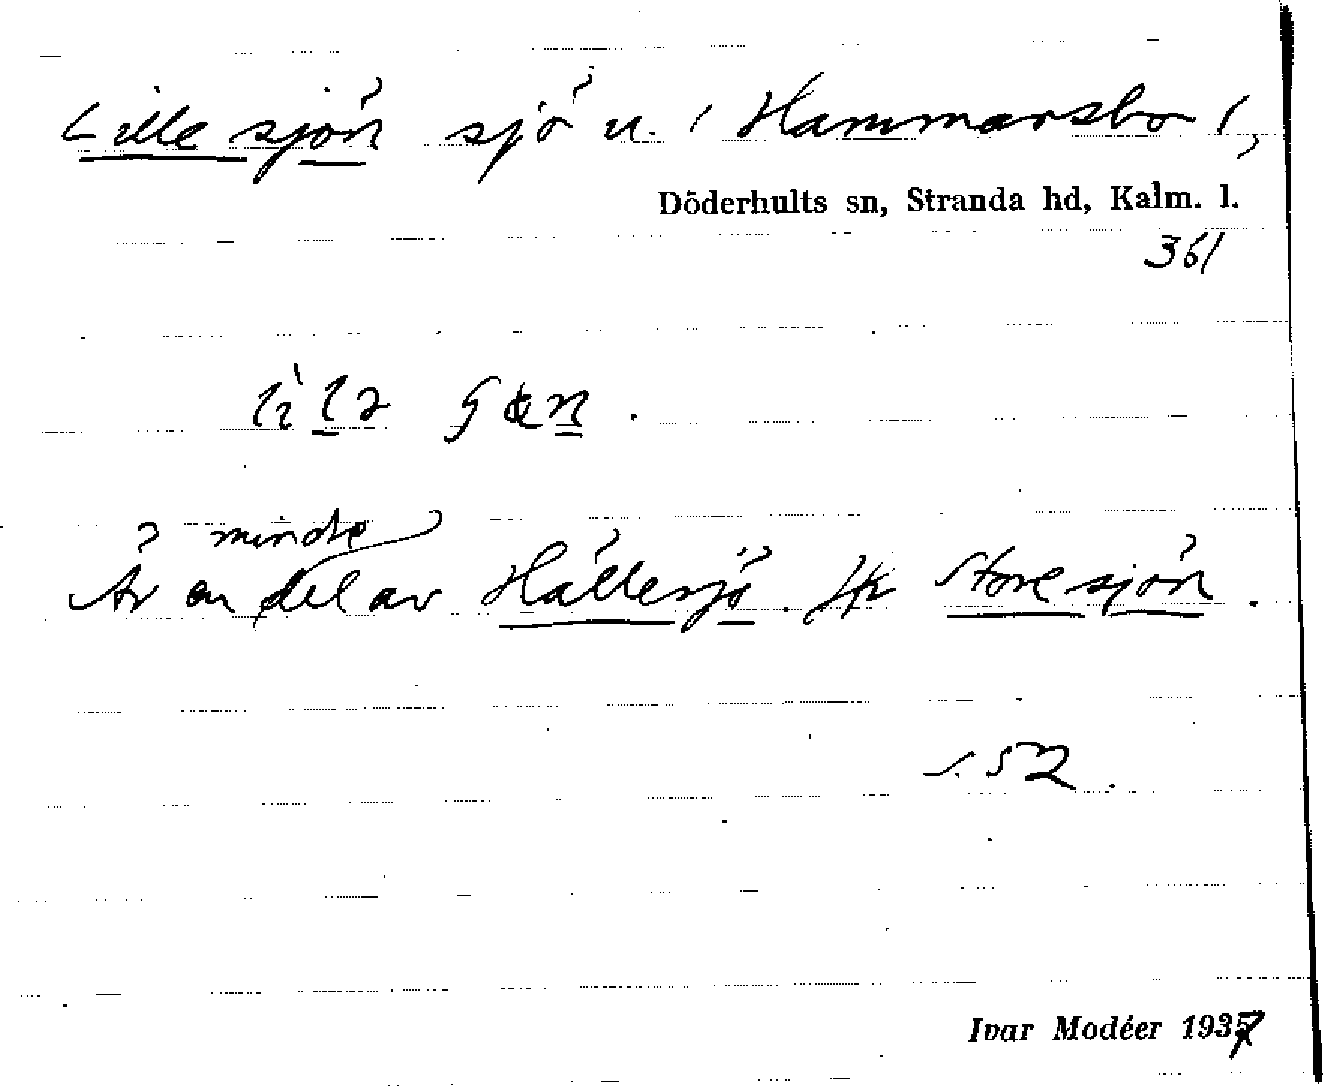 Lille sjön sjö u. ( Hammarsbo ),
Döderhults sn, Stranda hd, Kalm. l.
361
Är en mindre del av Hällesjö. Jfr Store sjön.
s. 52.
Ivar Modéer 1937